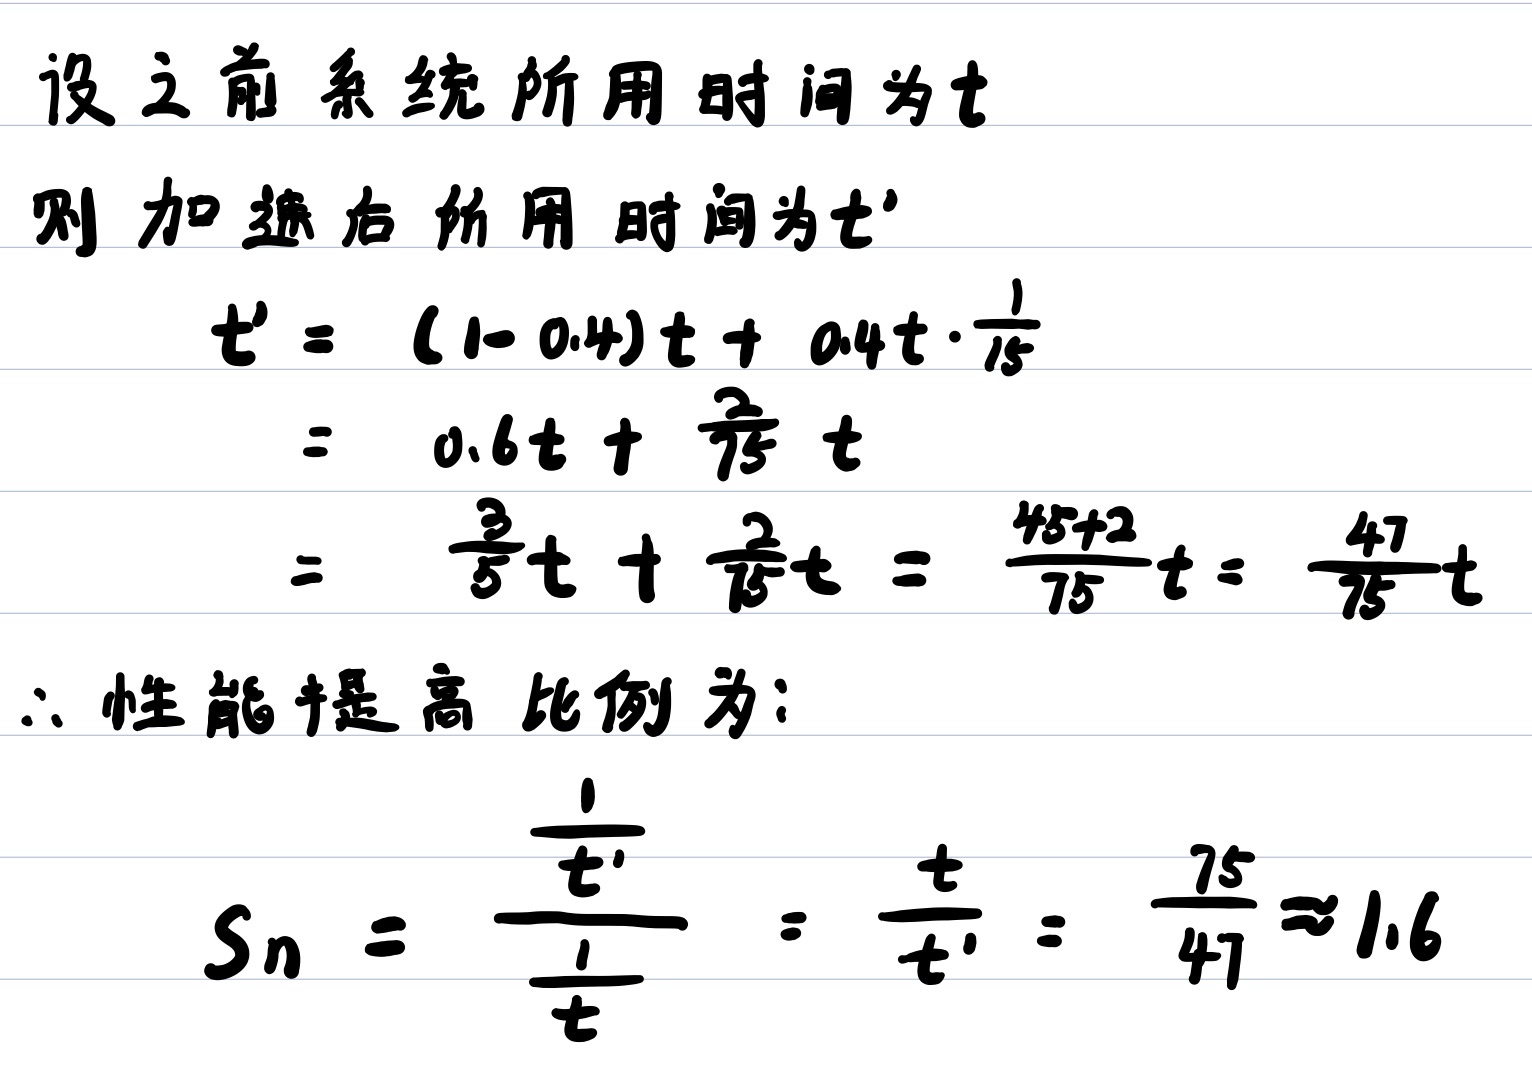 设之前系统所用时间为t
则加速后所用时间为t'
t' = (1-0.4)t + 0.4t·1/15
= 0.6t + 2/75 t
= 3/5 t + 2/75 t = 45+2/75 t = 47/75 t
∴性能提高比例为:
Sn = 1/t' / 1/t = t/t' = 75/47 ≈ 1.6